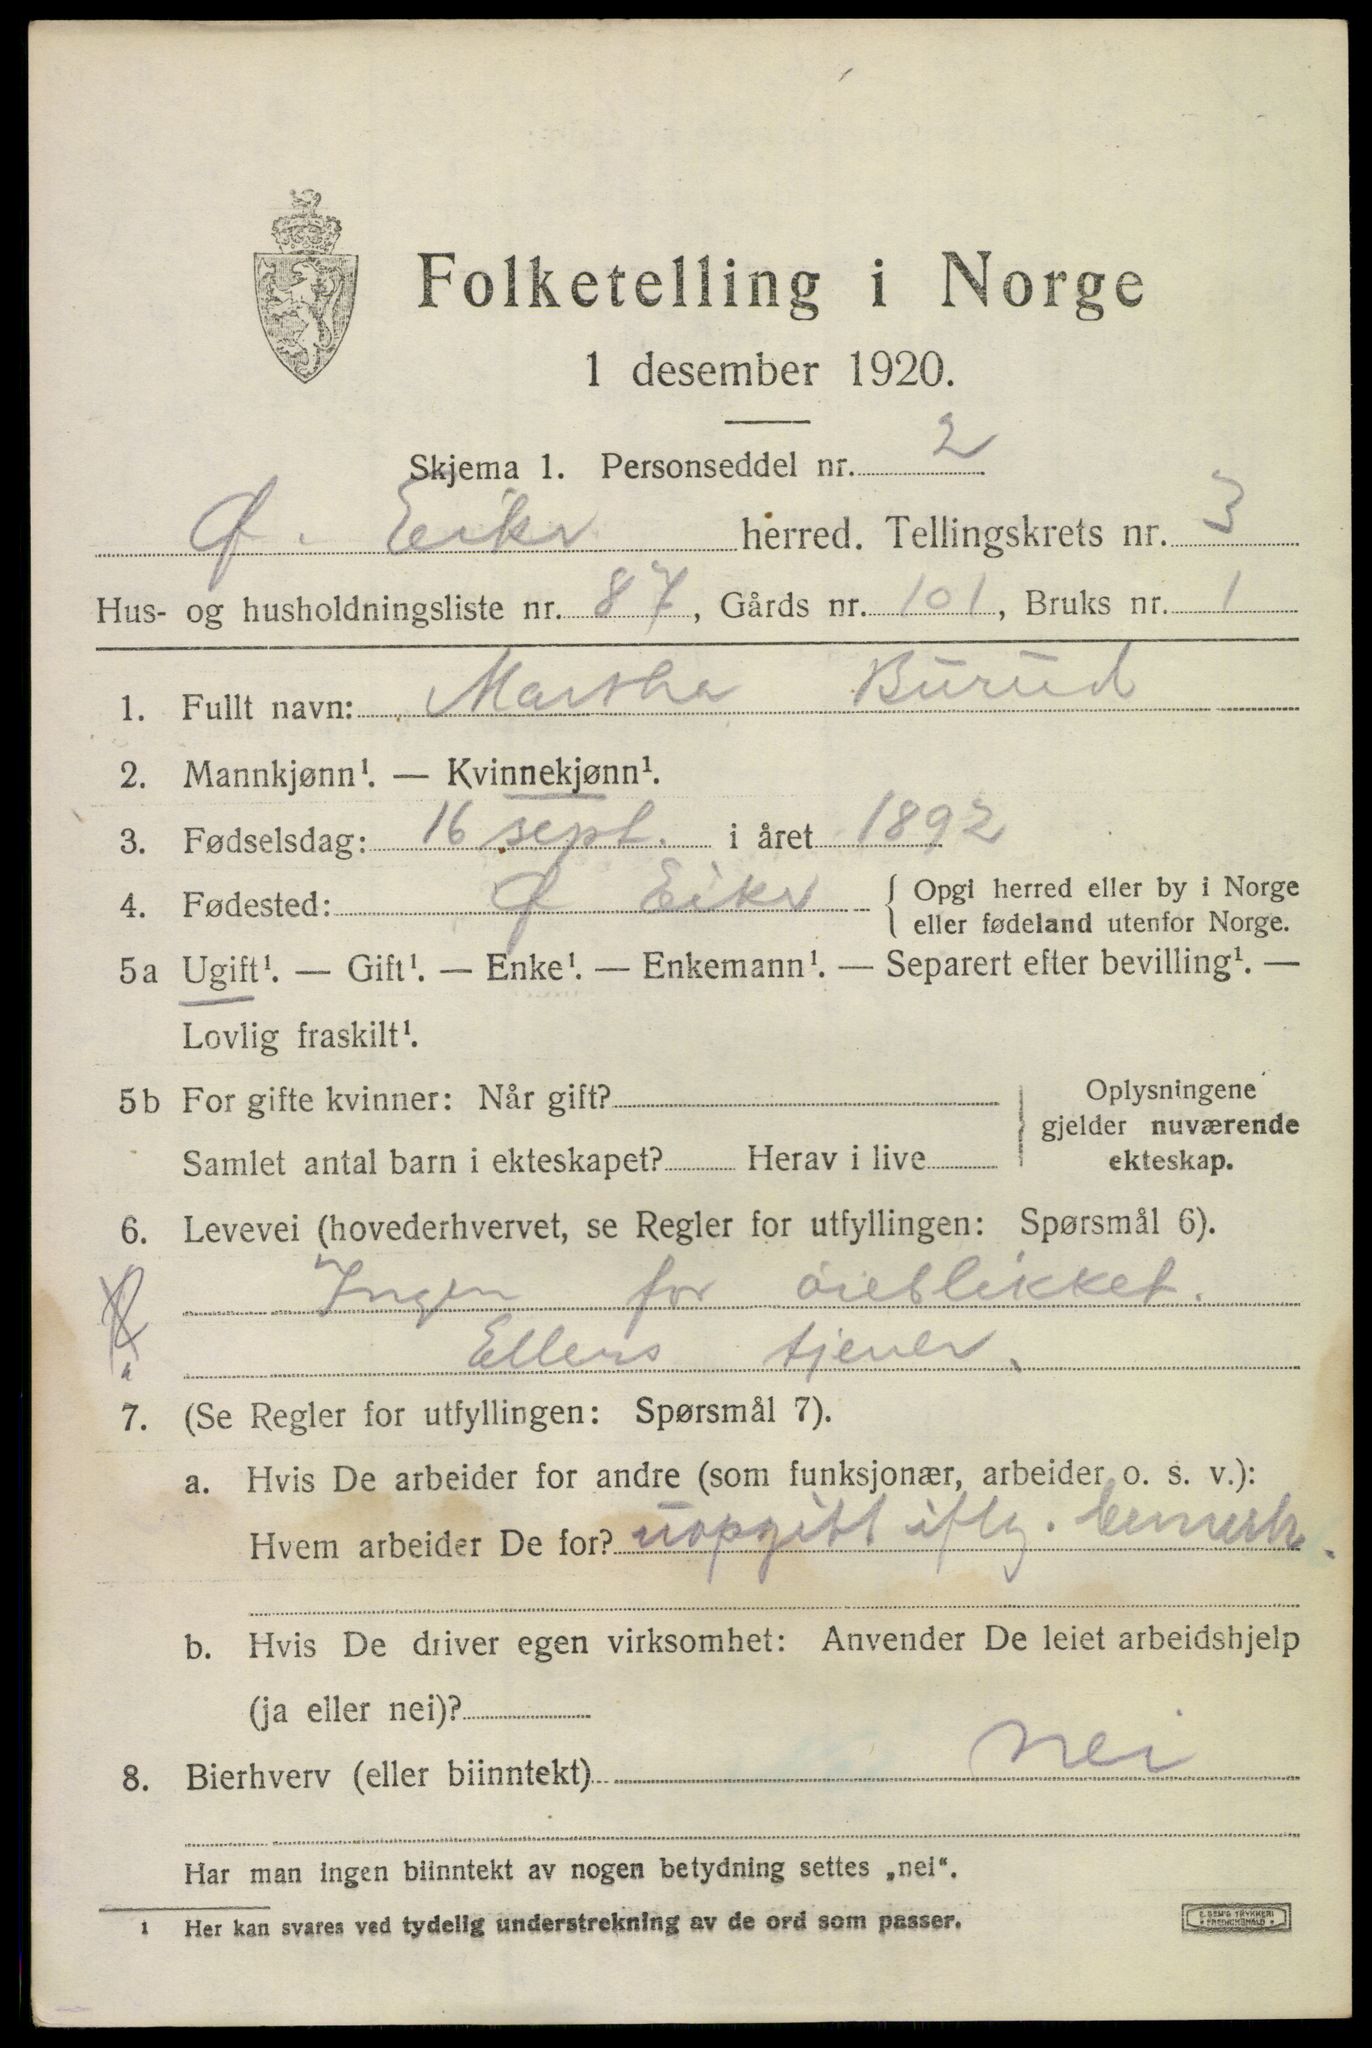 Folketelling i Norge
1 desember 1920.
Skjema 1. Personseddel nr. 2
Ø. Eiker herred. Tellingskrets nr. 3
Hus- og husholdningsliste nr. 87, Gårds nr. 101, Bruks nr. 1
1. Fullt navn: Martha Burud
2. Mannkjønn¹. — Kvinnekjønn¹.
3. Fødselsdag: 16 sept. i året 1892
4. Fødested: Ø Eiker { Opgi herred eller by i Norge
eller fødeland utenfor Norge.
5a Ugift¹. — Gift¹. — Enke¹. — Enkemann¹. — Separert efter bevilling¹. —
Lovlig fraskilt¹.
5b For gifte kvinner: Når gift? } Oplysningene
gjelder nuværende
Samlet antal barn i ekteskapet? Herav i live ekteskap.
6. Levevei (hovederhvervet, se Regler for utfyllingen: Spørsmål 6).
Ingen for øieblikket.
Ellers tjener.
7. (Se Regler for utfyllingen: Spørsmål 7).
a. Hvis De arbeider for andre (som funksjonær, arbeider o. s. v.):
Hvem arbeider De for? uopgitt iflg. bemerkn.
b. Hvis De driver egen virksomhet: Anvender De leiet arbeidshjelp
(ja eller nei)?
8. Bierhverv (eller biinntekt) nei
Har man ingen biinntekt av nogen betydning settes „nei“.
¹ Her kan svares ved tydelig understrekning av de ord som passer.